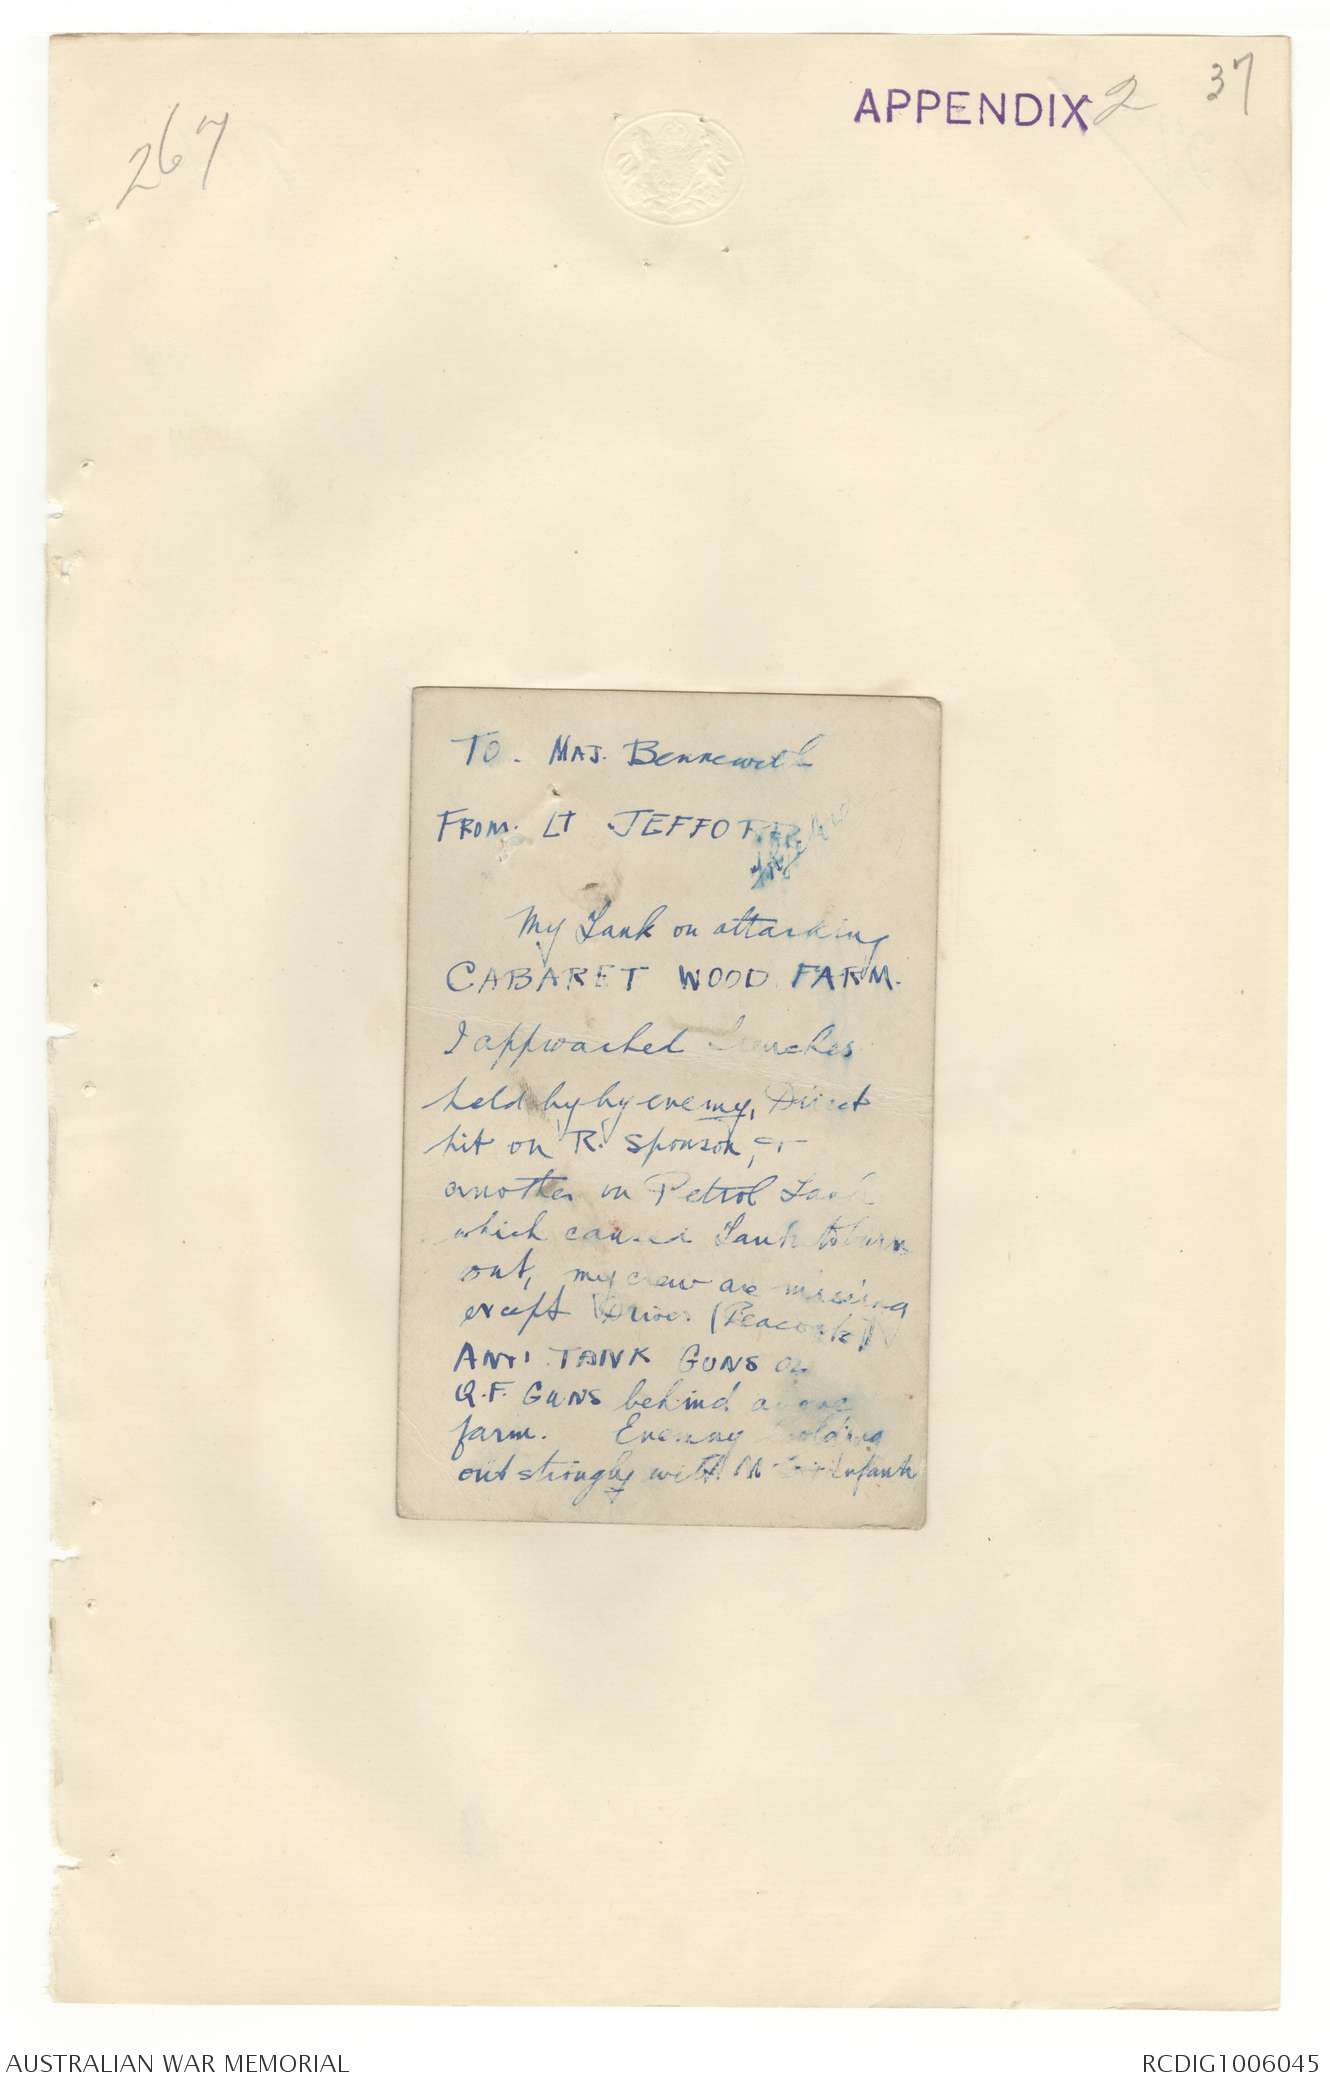 267
APPENDIX 2
37
TO. MAJ. Bennewith
FROM. Lt JEFFO
My Tank on attacking
CABARET WOOD FARM.
I approached trenches
held by by enemy, Direct
hit on R. Sponson, &
another on Petrol Tank
which caused Tank to burn
out, my crew are missing
except Driver (Peacock)
ANTI TANK GUNS or
Q.F. GUNS behind above
farm. Enemy holding
out strongly with Infantr
AUSTRALIAN WAR MEMORIAL
RCDIG1006045